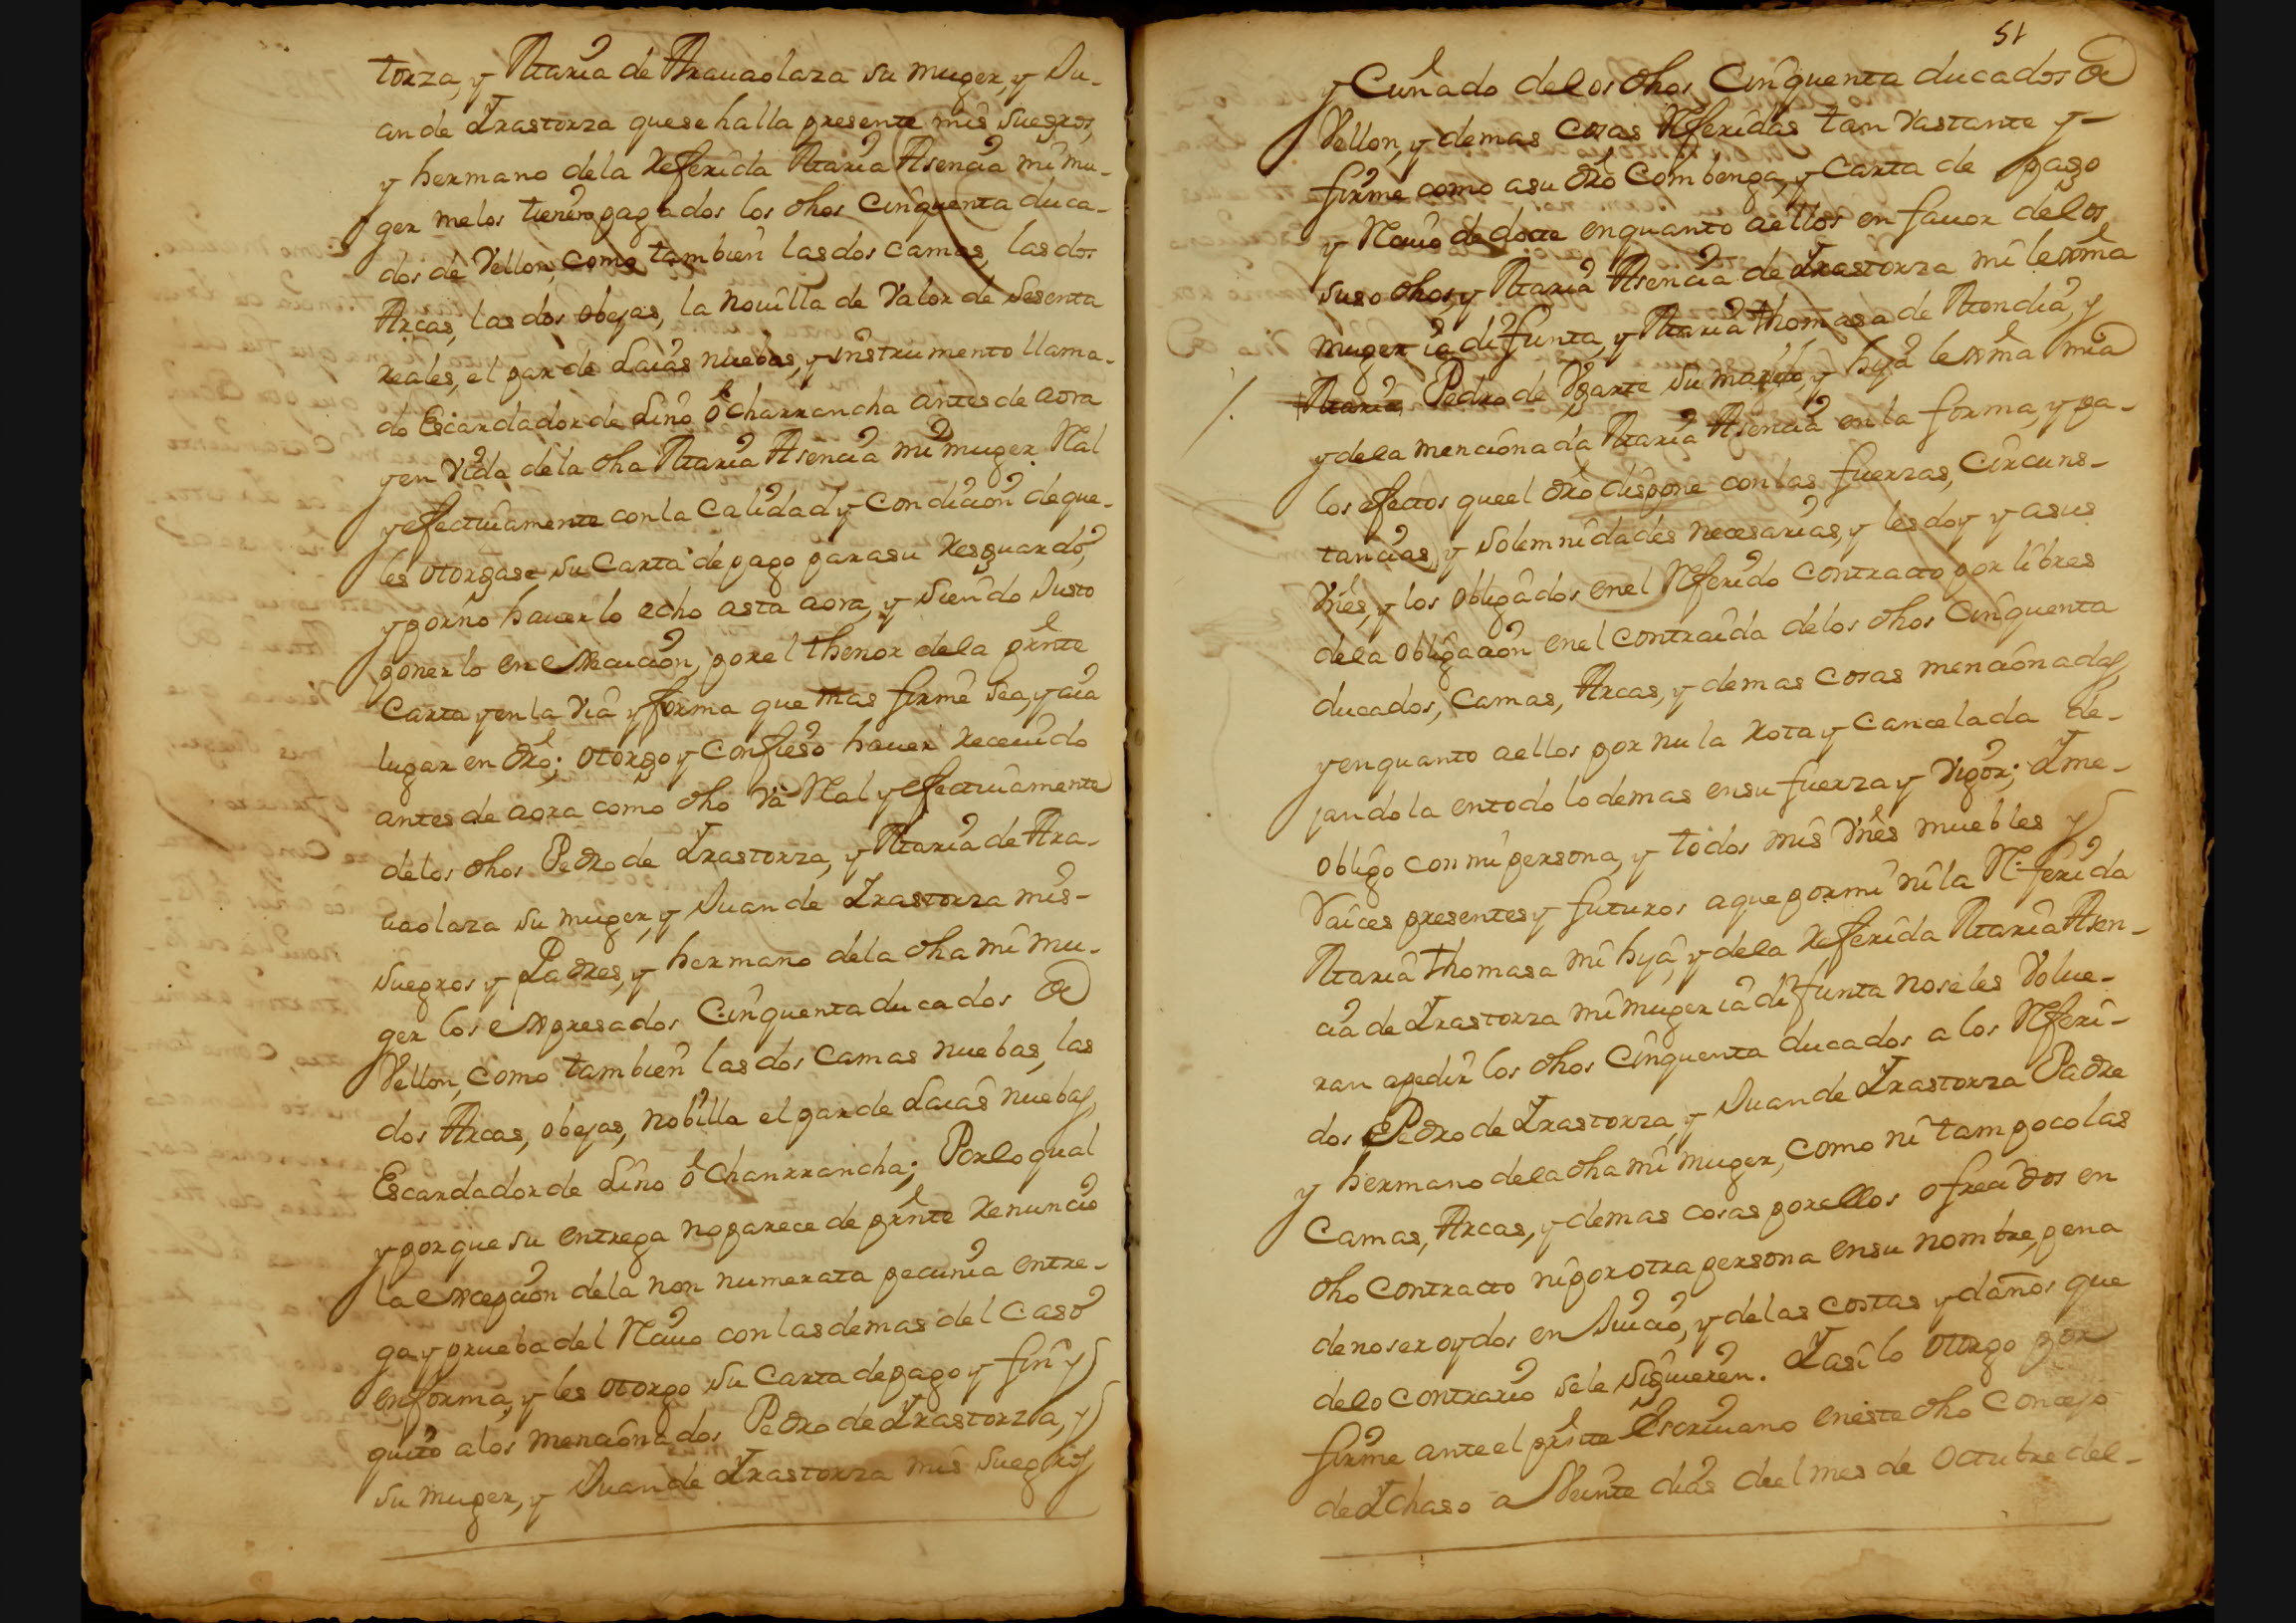 torza, y Maria de Arauaolaza su muger, y Ju-
an de Yrastorza que se halla presente mis suegros,
y hermano dela Referida Maria Asencia mi mu-
ger me los tienen pagados los dhos Cinquenta duca-
dos de Vellon, como tambien las dos camas, las dos
Arcas, las dos obejas, la nouilla de Valor de sesenta
Reales, el par de Laias nuebas, y instrumento llama-
do Escardador de Lino ó Charrancha antes de aora
y en Vida de la dha Maria Asencia mi muger Real
y efectiuamente con la Calidad y Condicion de que-
les otorgase su Carta de pago para su Resguardo,
y por no hauerlo echo asta aora, y siendo Justo
ponerlo en execucion, por el thenor dela prnte
Carta y en la via y forma que mas firme sea, y aia
lugar en dro; otorgo y Confieso hauer Receuido
antes de aora como dho va Real y efectiuamente
delos dhos Pedro de Yrastorza, y Maria de Ara-
uaolaza su muger, y Juan de Yrastorza mis-
suegros y Padres, y hermano dela dha mi mu-
ger los expresados Cinquenta ducados de
Vellon, como tambien las dos camas nuebas, las
dos Arcas, obejas, nobilla el par de Laias nuebas,
Escardador de Lino ó Chanrrancha; Por lo qual
y por que su entrega no parece de prnte Renuncio
la excepcion dela non numerata pecunia entre-
ga y prueba del Reciuo con las demas del Caso
en forma, y les otorgo su Carta de pago y fin y
quito a los mencionados Pedro de Yrastorza, y
su muger, y Juan de Yrastorza mis suegros
51
y Cuñado delos dhos Cinquenta ducados de
Vellon, y demas cosas Referidas tan Vastante y-
firme como a su dro Combenga, y Carta de pago
y Reciuo de dote en quanto a ellos en fauor delos
suso dhos, y Maria Asencia de Yrastorza mi lexma
muger ia difunta, y Maria thomasa de Mendia, y
Maria, Pedro de Vgarte su marido, y hija lexma mia
y dela mencionada Maria Asencia en la forma, y pa-
los efectos que el dro dispone con las fuerzas, Circuns-
tancias, y solemnidades necesarias, y les doy y a sus
Vnes, y los obligados en el Referido Contracto por libres
dela obligacion en el contraida delos dhos Cinquenta
ducados, Camas, Arcas, y demas cosas mencionadas,
y en quanto a ellos por nula Rota y Cancelada de-
jandola en todo lo demas en su fuerza y vigor; Y me-
obligo con mi persona, y todos mis Vnes muebles y
Raices presentes y futuros a que por mi ni la Referida
Maria thomasa mi hija, y dela Referida Maria Asen-
cia de Yrastorza mi muger ia difunta no se les Volue-
ran a pedir los dhos Cinquenta ducados a los Referi-
dos Pedro de Yrastorza, y Juan de Yrastorza Padre
y hermano dela dha mi muger, como ni tampoco las
Camas, Arcas, y demas cosas por ellos ofrecidos en
dho Contracto ni por otra persona en su nombre, pena
de no ser oydos en Juicio, y delas costas y daños que
delo contrario se le siguieren. Y asi lo otorgo por
firme ante el prnte Escriuano en este dho Concejo
de Ychaso a Veinte dias del mes de Octubre del-